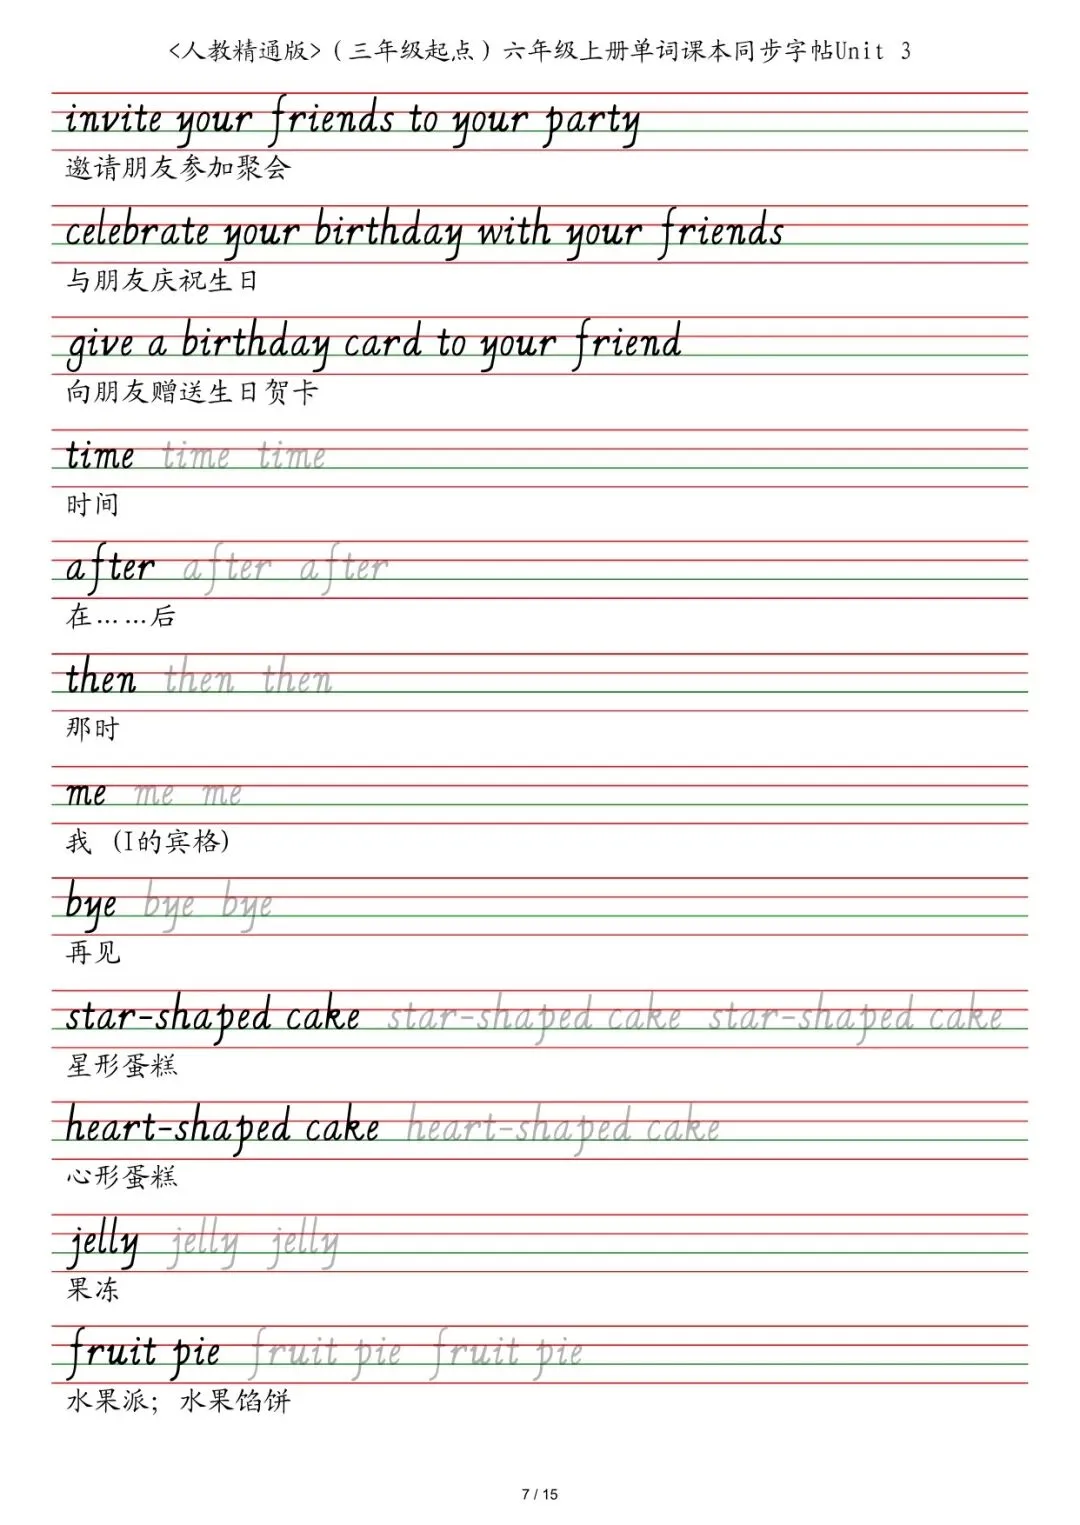 <人教精通版>(三年级起点)六年级上册单词课本同步字帖Unit 3
invite your friends to your party
邀请朋友参加聚会
celebrate your birthday with your friends
与朋友庆祝生日
give a birthday card to your friend
向朋友赠送生日贺卡
time time time
时间
after after after
在……后
then then then
那时
me me me
我 (I的宾格)
bye bye bye
再见
star-shaped cake star-shaped cake star-shaped cake
星形蛋糕
heart-shaped cake heart-shaped cake
心形蛋糕
jelly jelly jelly
果冻
fruit pie fruit pie fruit pie
水果派；水果馅饼
7 / 15